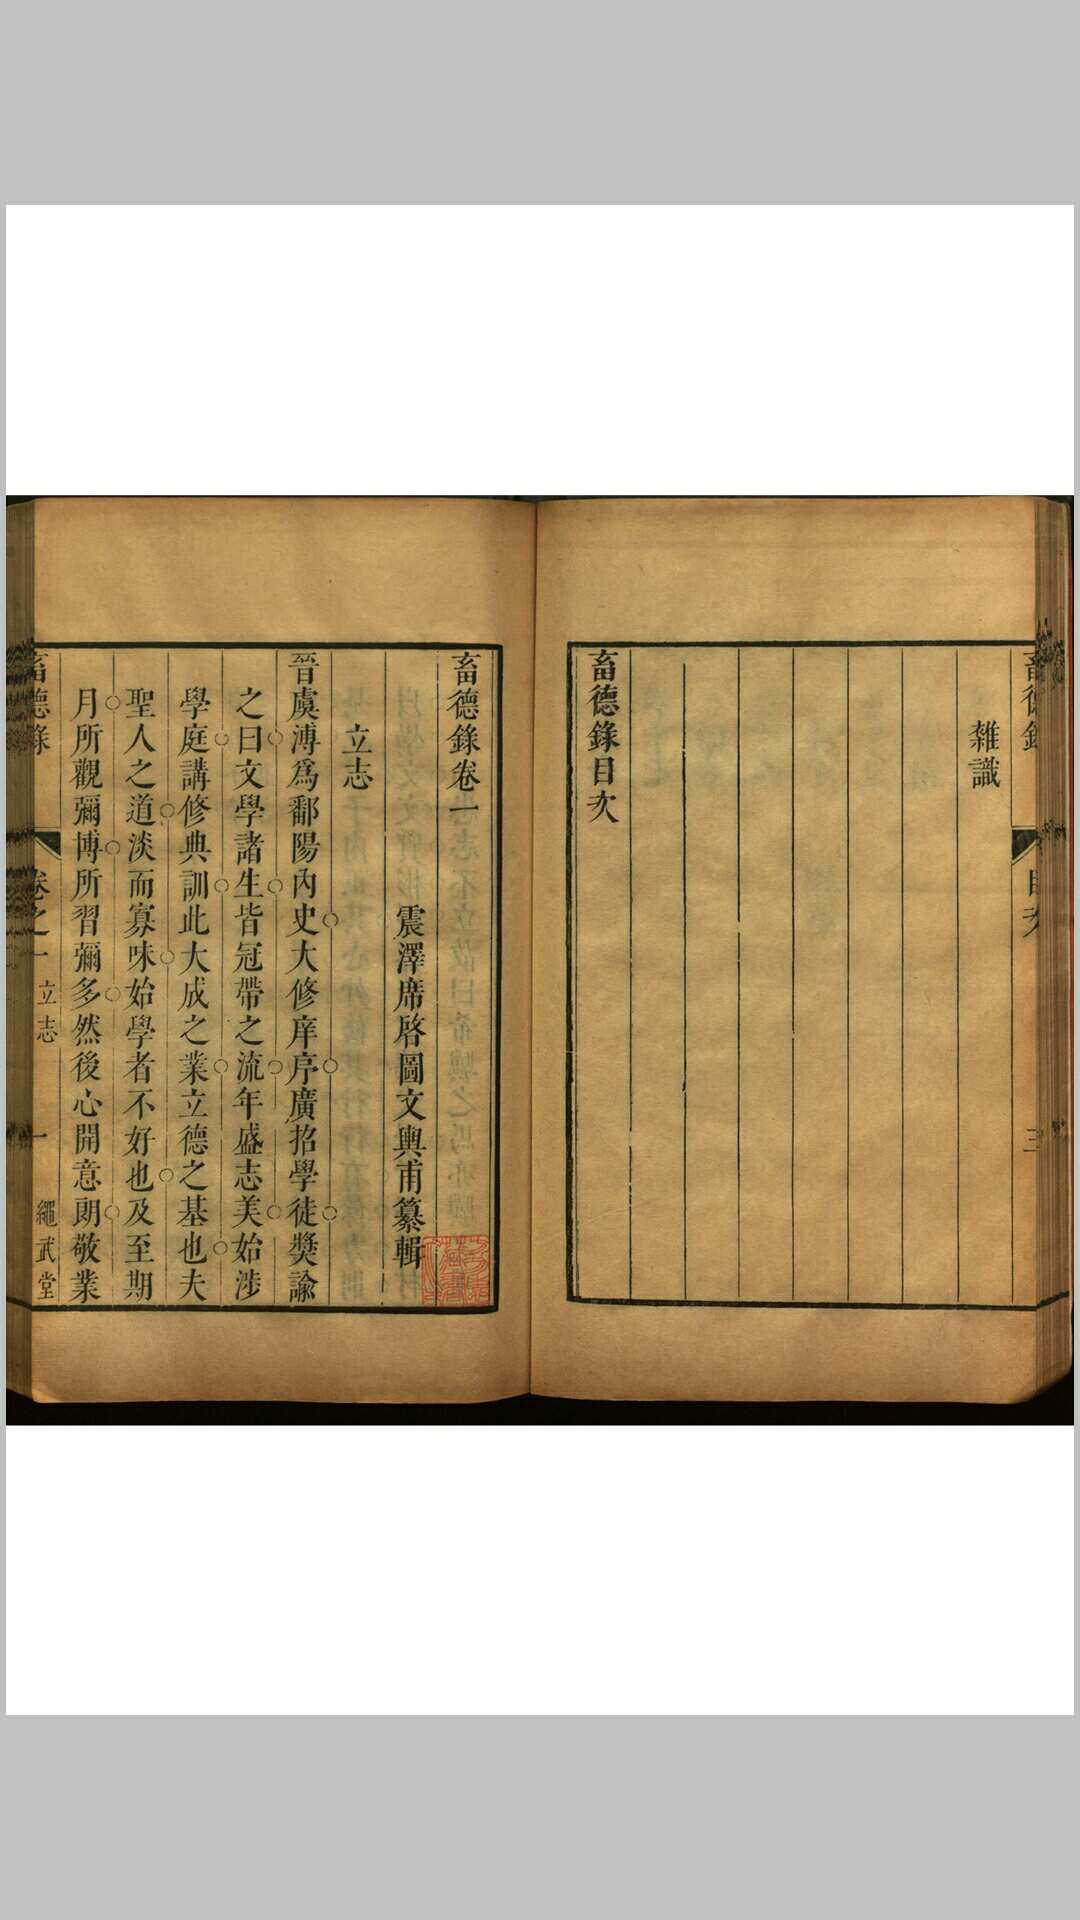 畜德錄
目次
三
雜識
畜德錄目次
畜德錄卷一
震澤席啓圖文輿甫纂輯
立志
晉虞溥爲鄱陽內史大修庠序廣招學徒獎諭
之曰文學諸生皆冠帶之流年盛志美始涉
學庭講修典訓此大成之業立德之基也夫
聖人之道淡而寡味始學者不好也及至期
月所觀彌博所習彌多然後心開意朗敬業
畜德錄
卷之一
立志
一
繩武堂